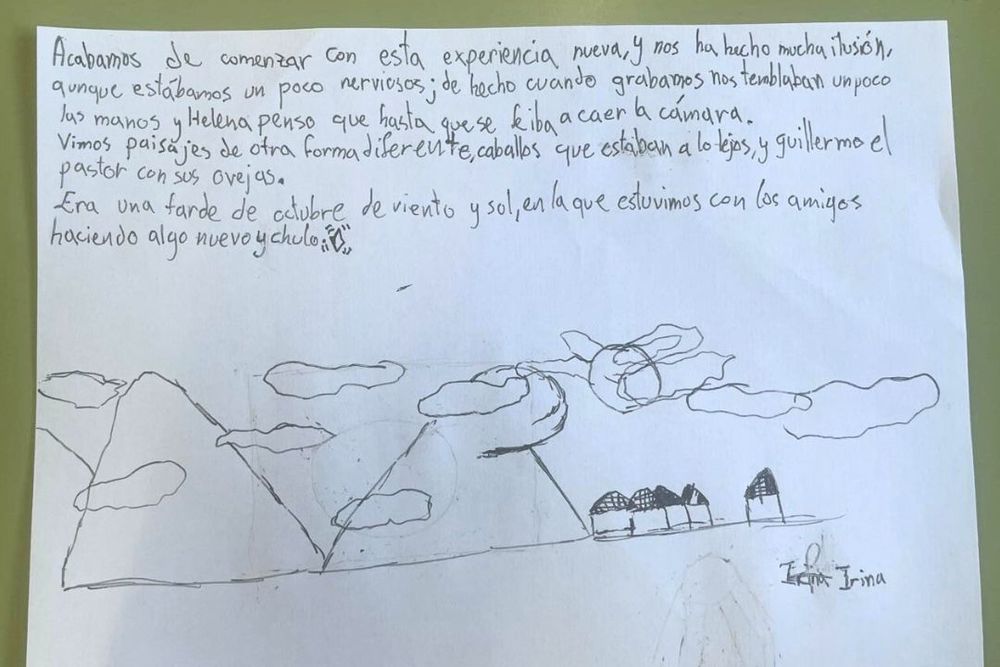 Acabamos de comenzar con esta experiencia nueva, y nos ha hecho mucha ilusión,
aunque estábamos un poco nerviosos; de hecho cuando grabamos nos temblaban un poco
las manos y Helena penso que hasta que se le iba a caer la cámara.
Vimos paisajes de otra forma diferente, caballos que estaban a lo lejos, y guillermo el
pastor con sus ovejas.
Era una tarde de octubre de viento y sol, en la que estuvimos con los amigos
haciendo algo nuevo y chulo.
Irina